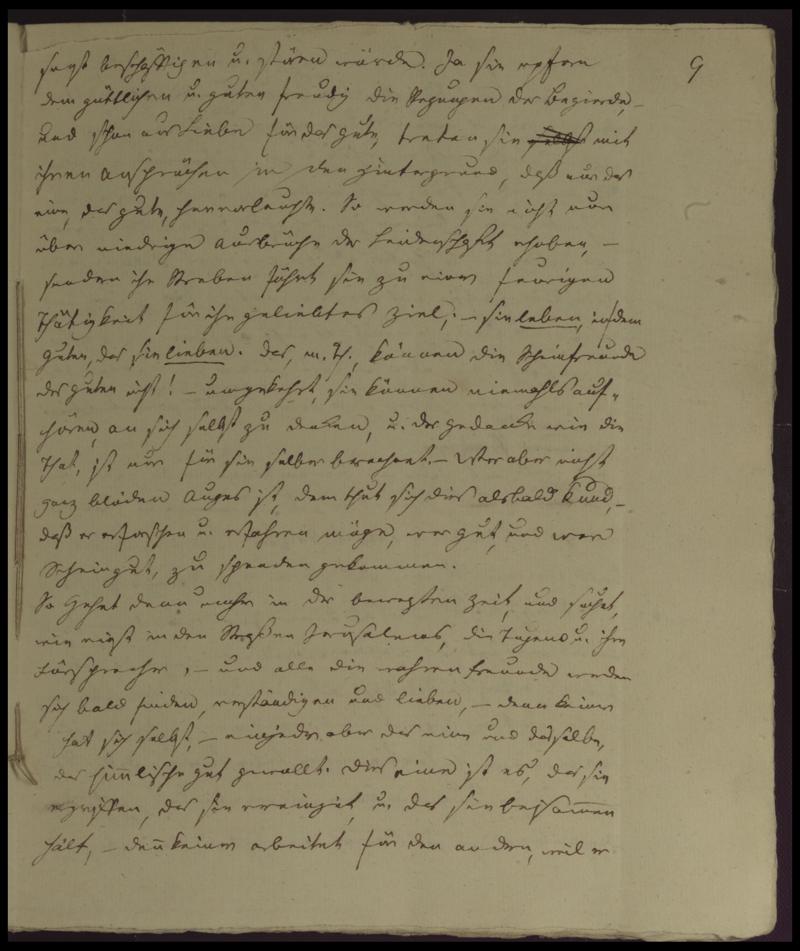 9
sonst beschäftigen u. stören würde. Ja sie opfern
dem göttlichen u. guten freudig die Regungen der Begierde, –
und schon aus Liebe für das gute, treten sie mit
ihren Ansprüchen in den Hintergrund, daß nur das
eine, das gute, hervorleuchte. So werden sie nicht nur
über niedrige Ausbrüche der Leidenschaft erhoben, –
sondern ihr Streben führt sie zu einer feurigen
Thätigkeit für ihr geliebtes Ziel; – sie leben, in dem
guten, das sie lieben. Das, m. Th., können die Scheinfreunde
des guten nicht! – umgekehrt, sie können niemahls auf-
hören, an sich selbst zu denken, u. der gedanke wie die
That, ist nur für sie selber berechnet. – Wer aber nicht
ganz blöden Auges ist, dem thut sich dies alsbald kund, –
daß er erforschen u. erfahren möge, wer gut, und wer
Scheingut, zu spenden gekommen.
So gehet denn umher in der bewegten Zeit, und suchet,
wie einst in den Straßen Jerusalems, die Tugend u. ihre
Fürsprecher, – und alle die wahren Freunde werden
sich bald finden, verständigen und lieben, – denn keiner
hat sich selbst, – ein jeder aber das eine und dasselbe,
das himmlische gut gewollt. Dies eine ist es, das sie
ergriffen, das sie vereinigt, u. das sie beysammen
hält, – denn keiner arbeitet für den andern, weil er